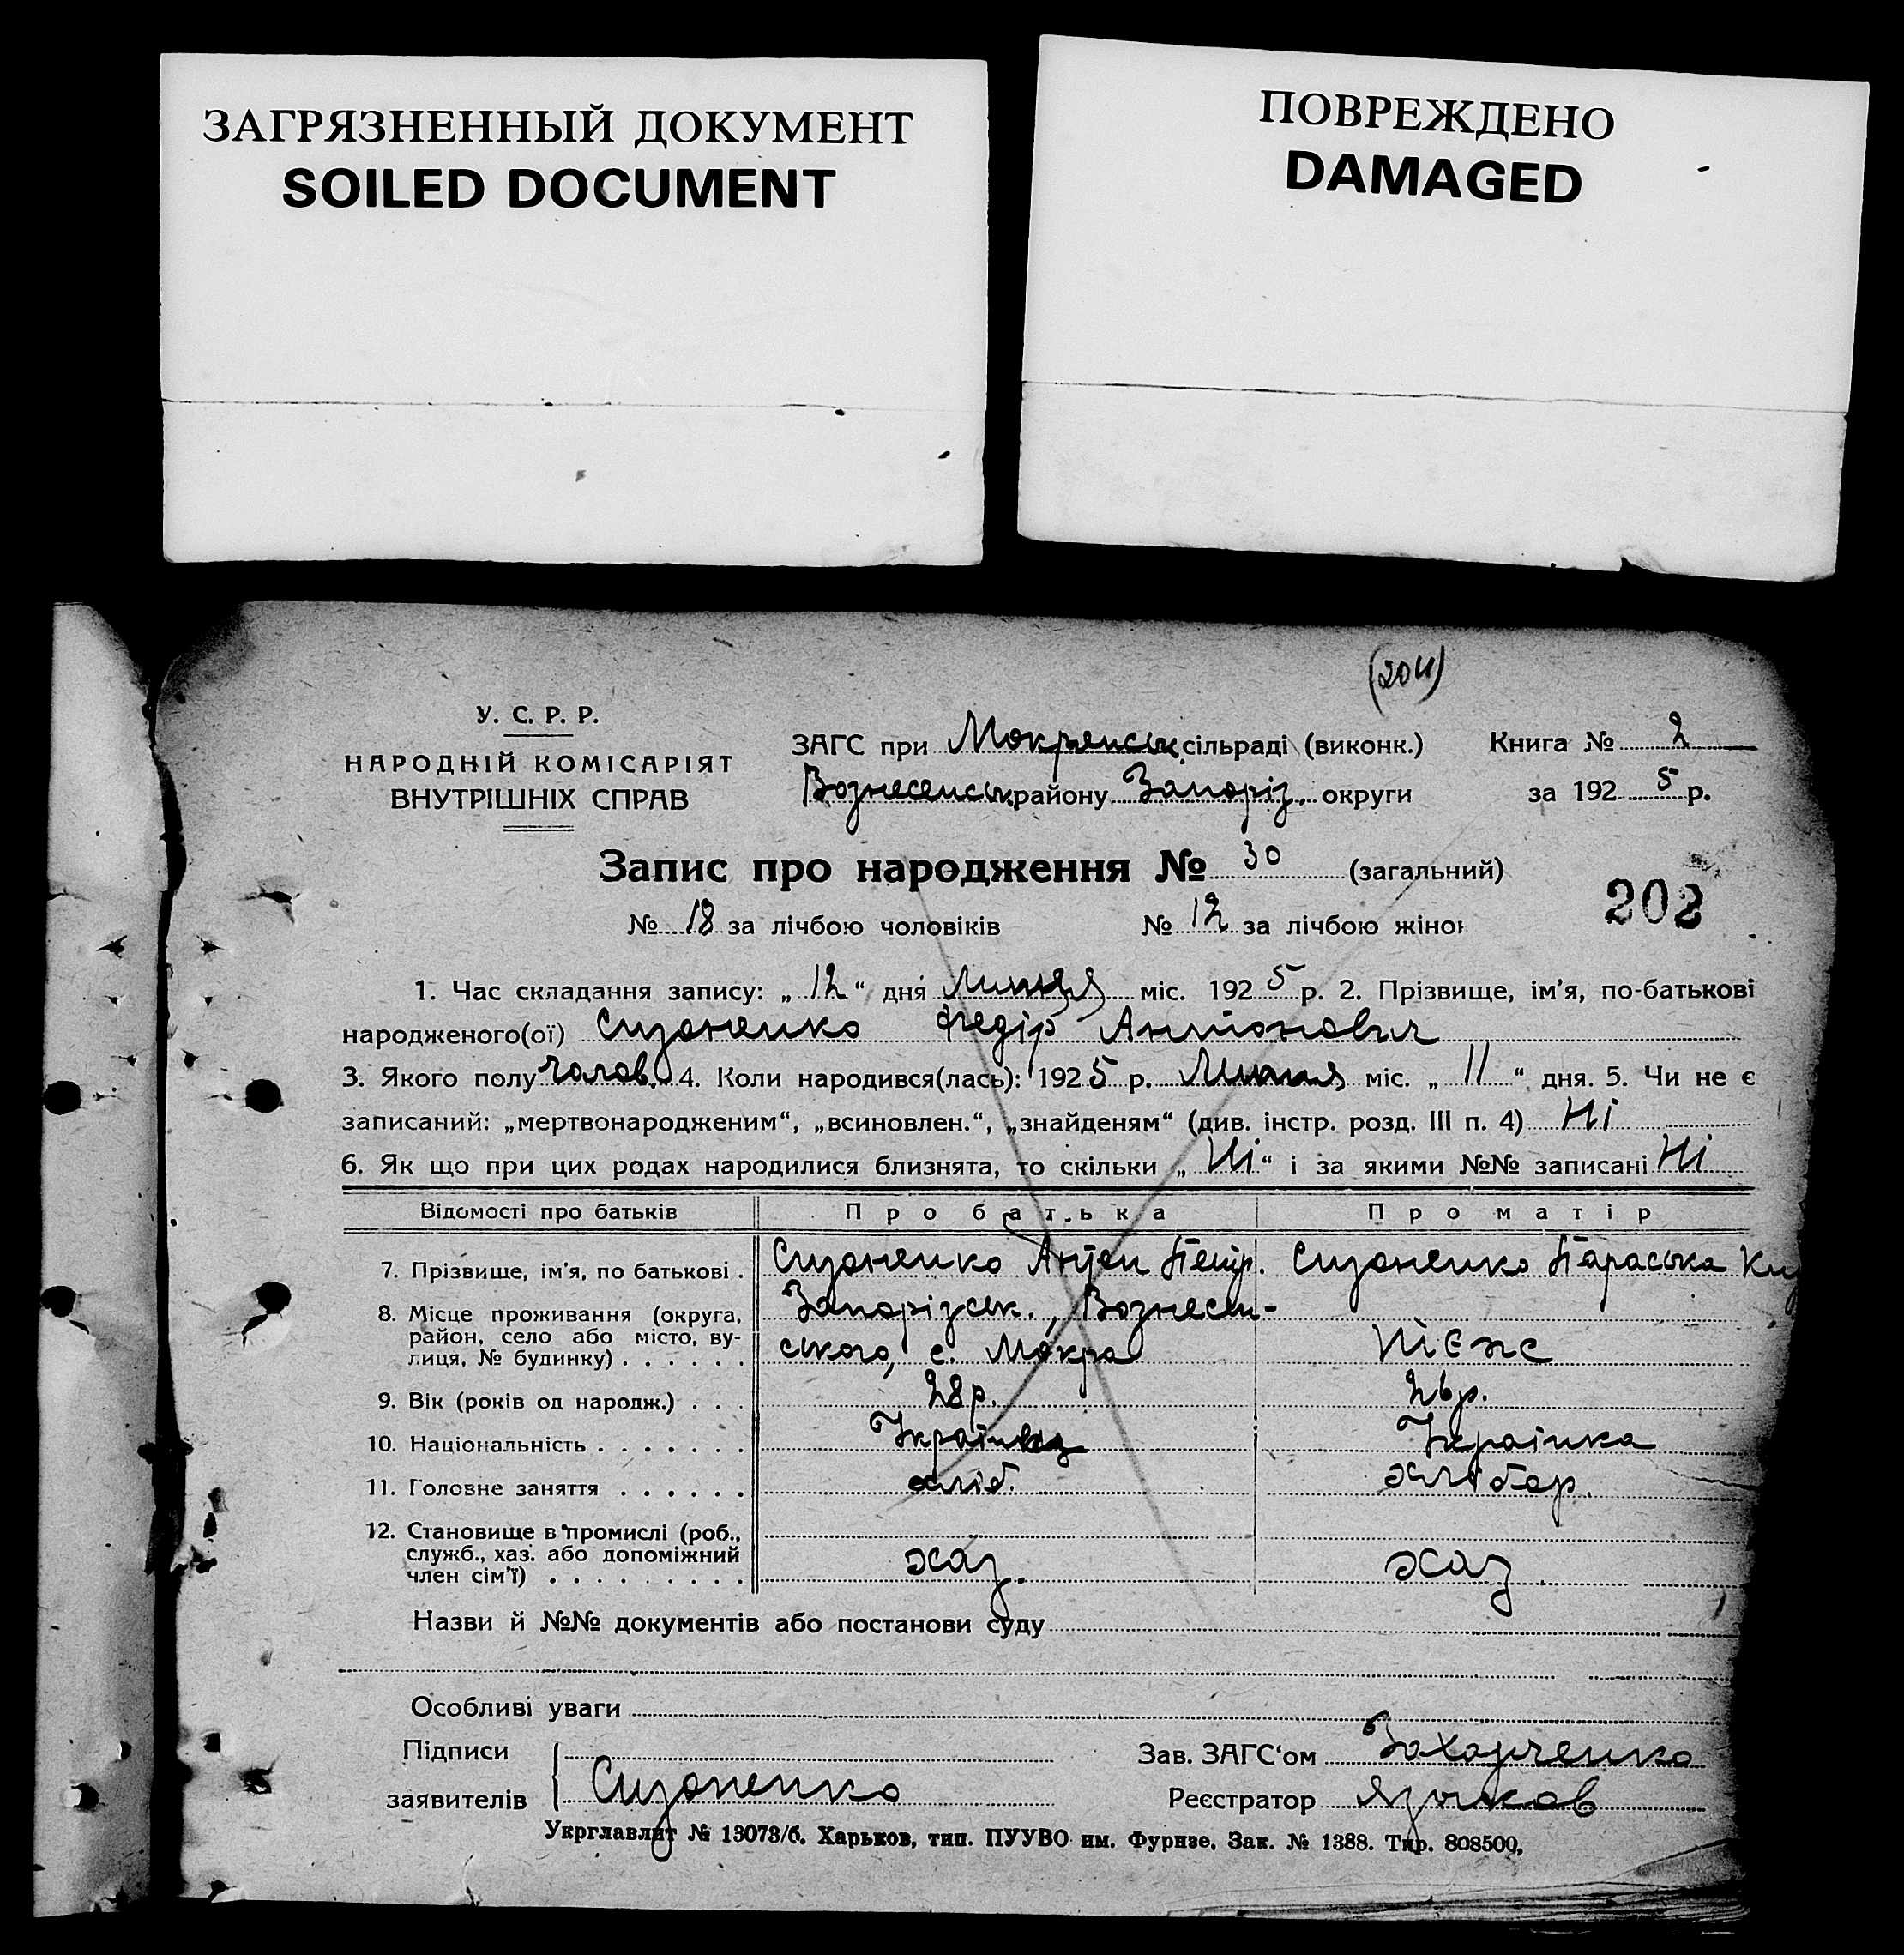 ЗАГРЯЗНЕННЫЙ ДОКУМЕНТ
SOILED DOCUMENT
ПОВРЕЖДЕНО
DAMAGED
(204)
У. С. Р. Р.
НАРОДНІЙ КОМІСАРІЯТ
ВНУТРІШНІХ СПРАВ
ЗАГС при Мокрянськ. сільраді (виконк.) Книга № 2
Вознесенськ. району Запоріз. округи за 192 5 р.
Запис про народження № 30 (загальний)
202
№ 18 за лічбою чоловіків № 12 за лічбою жінок
1. Час складання запису: „ 12 “ дня Липця міс. 192 5 р. 2. Прізвище, ім’я, по-батькові
народженого(ої) Сизоненко Федір Антонович
3. Якого полу чолов. 4. Коли народився(лась): 192 5 р. Липня міс. „ 11 “ дня. 5. Чи не є
записаний: „мертвонародженим“, „всиновлен.“, „знайденям“ (див. інстр. розд. III п. 4) Ні
6. Як що при цих родах народилися близнята, то скільки „ Ні “ і за якими №№ записані Ні
Відомості про батьків Про батька Про матір
7. Прізвище, ім’я, по батькові . Сизоненко Антон Петр. Сизоненко Параська
8. Місце проживання (округа, район, село або місто, вулиця, № будинку) . . . . . . Запорізськ., Вознесен-
ського, с. Мокра тієж
9. Вік (років од народж.) . . . 28 р. 26 р.
10. Національність . . . . . . . Українец Українка
11. Головне заняття . . . . . . хліб. хлібор.
12. Становище в промислі (роб., служб., хаз. або допоміжний член сім’ї) . . . . . . . . . хаз. хаз.
Назви й №№ документів або постанови суду
Особливі уваги
Підписи заявителів Сизоненко
Зав. ЗАГС‘ом Захарченко
Реєстратор Язиков
Укрглавлит № 13073/б. Харьков, тип. ПУУВО им. Фрунзе, Зак. № 1388. Тир. 808500,